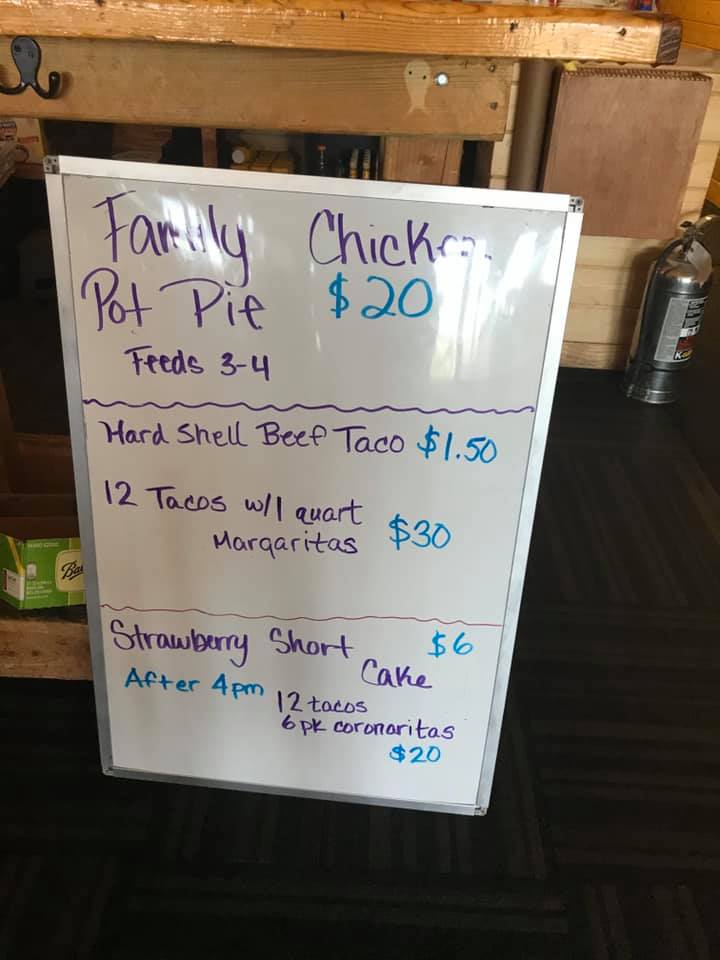 Family Chicken
Pot Pie $20
Feeds 3-4
Hard Shell Beef Taco $1.50
12 Tacos w/1 quart
Margaritas $30
Strawberry Short $6
Cake
After 4pm
12 tacos
6 pk coronaritas
$20